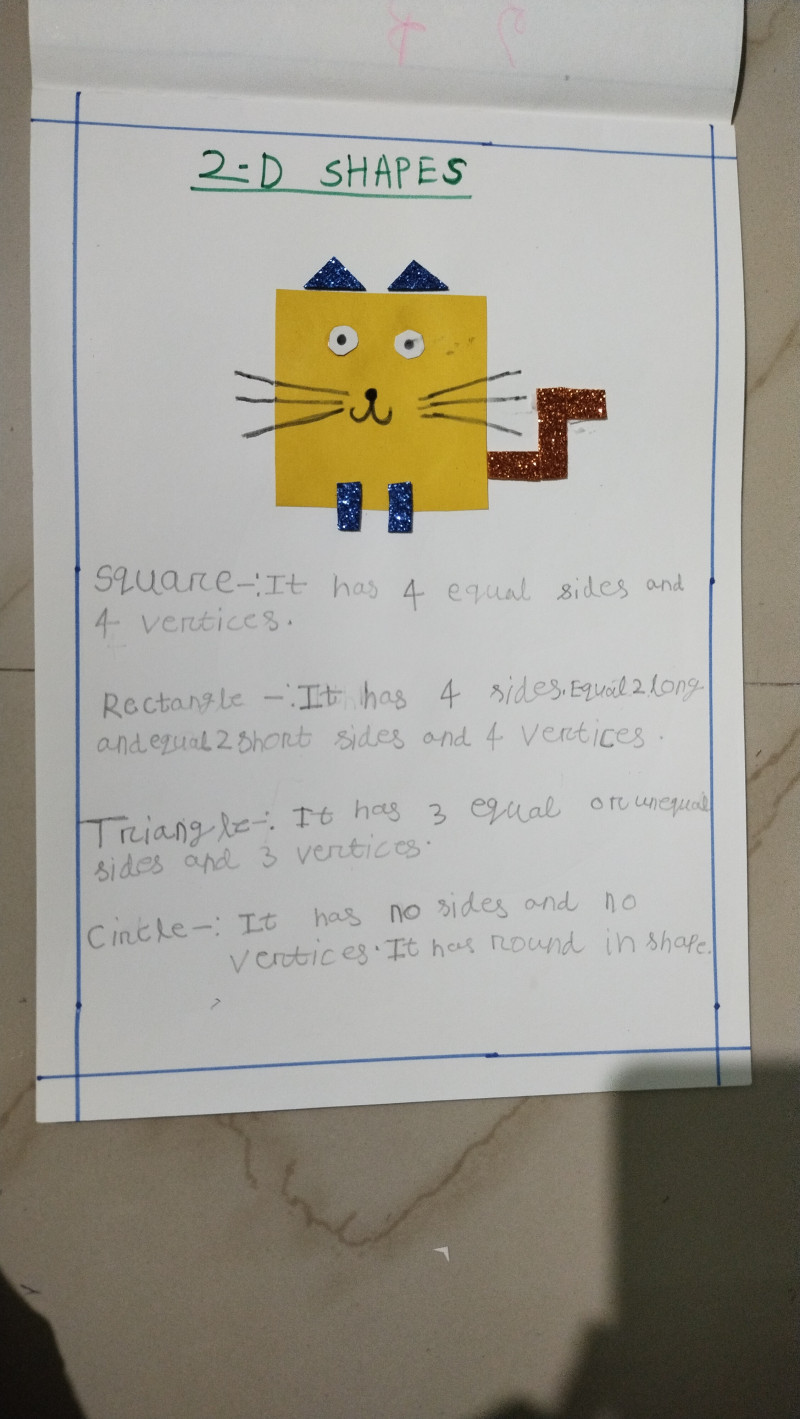 2-D SHAPES
Square-: It has 4 equal sides and
4 vertices.
Rectangle -: It has 4 sides. Equal 2 long
and equal 2 short sides and 4 vertices.
Triangle-: It has 3 equal or unequal
sides and 3 vertices.
Circle-: It has no sides and no
vertices. It has round in shape.